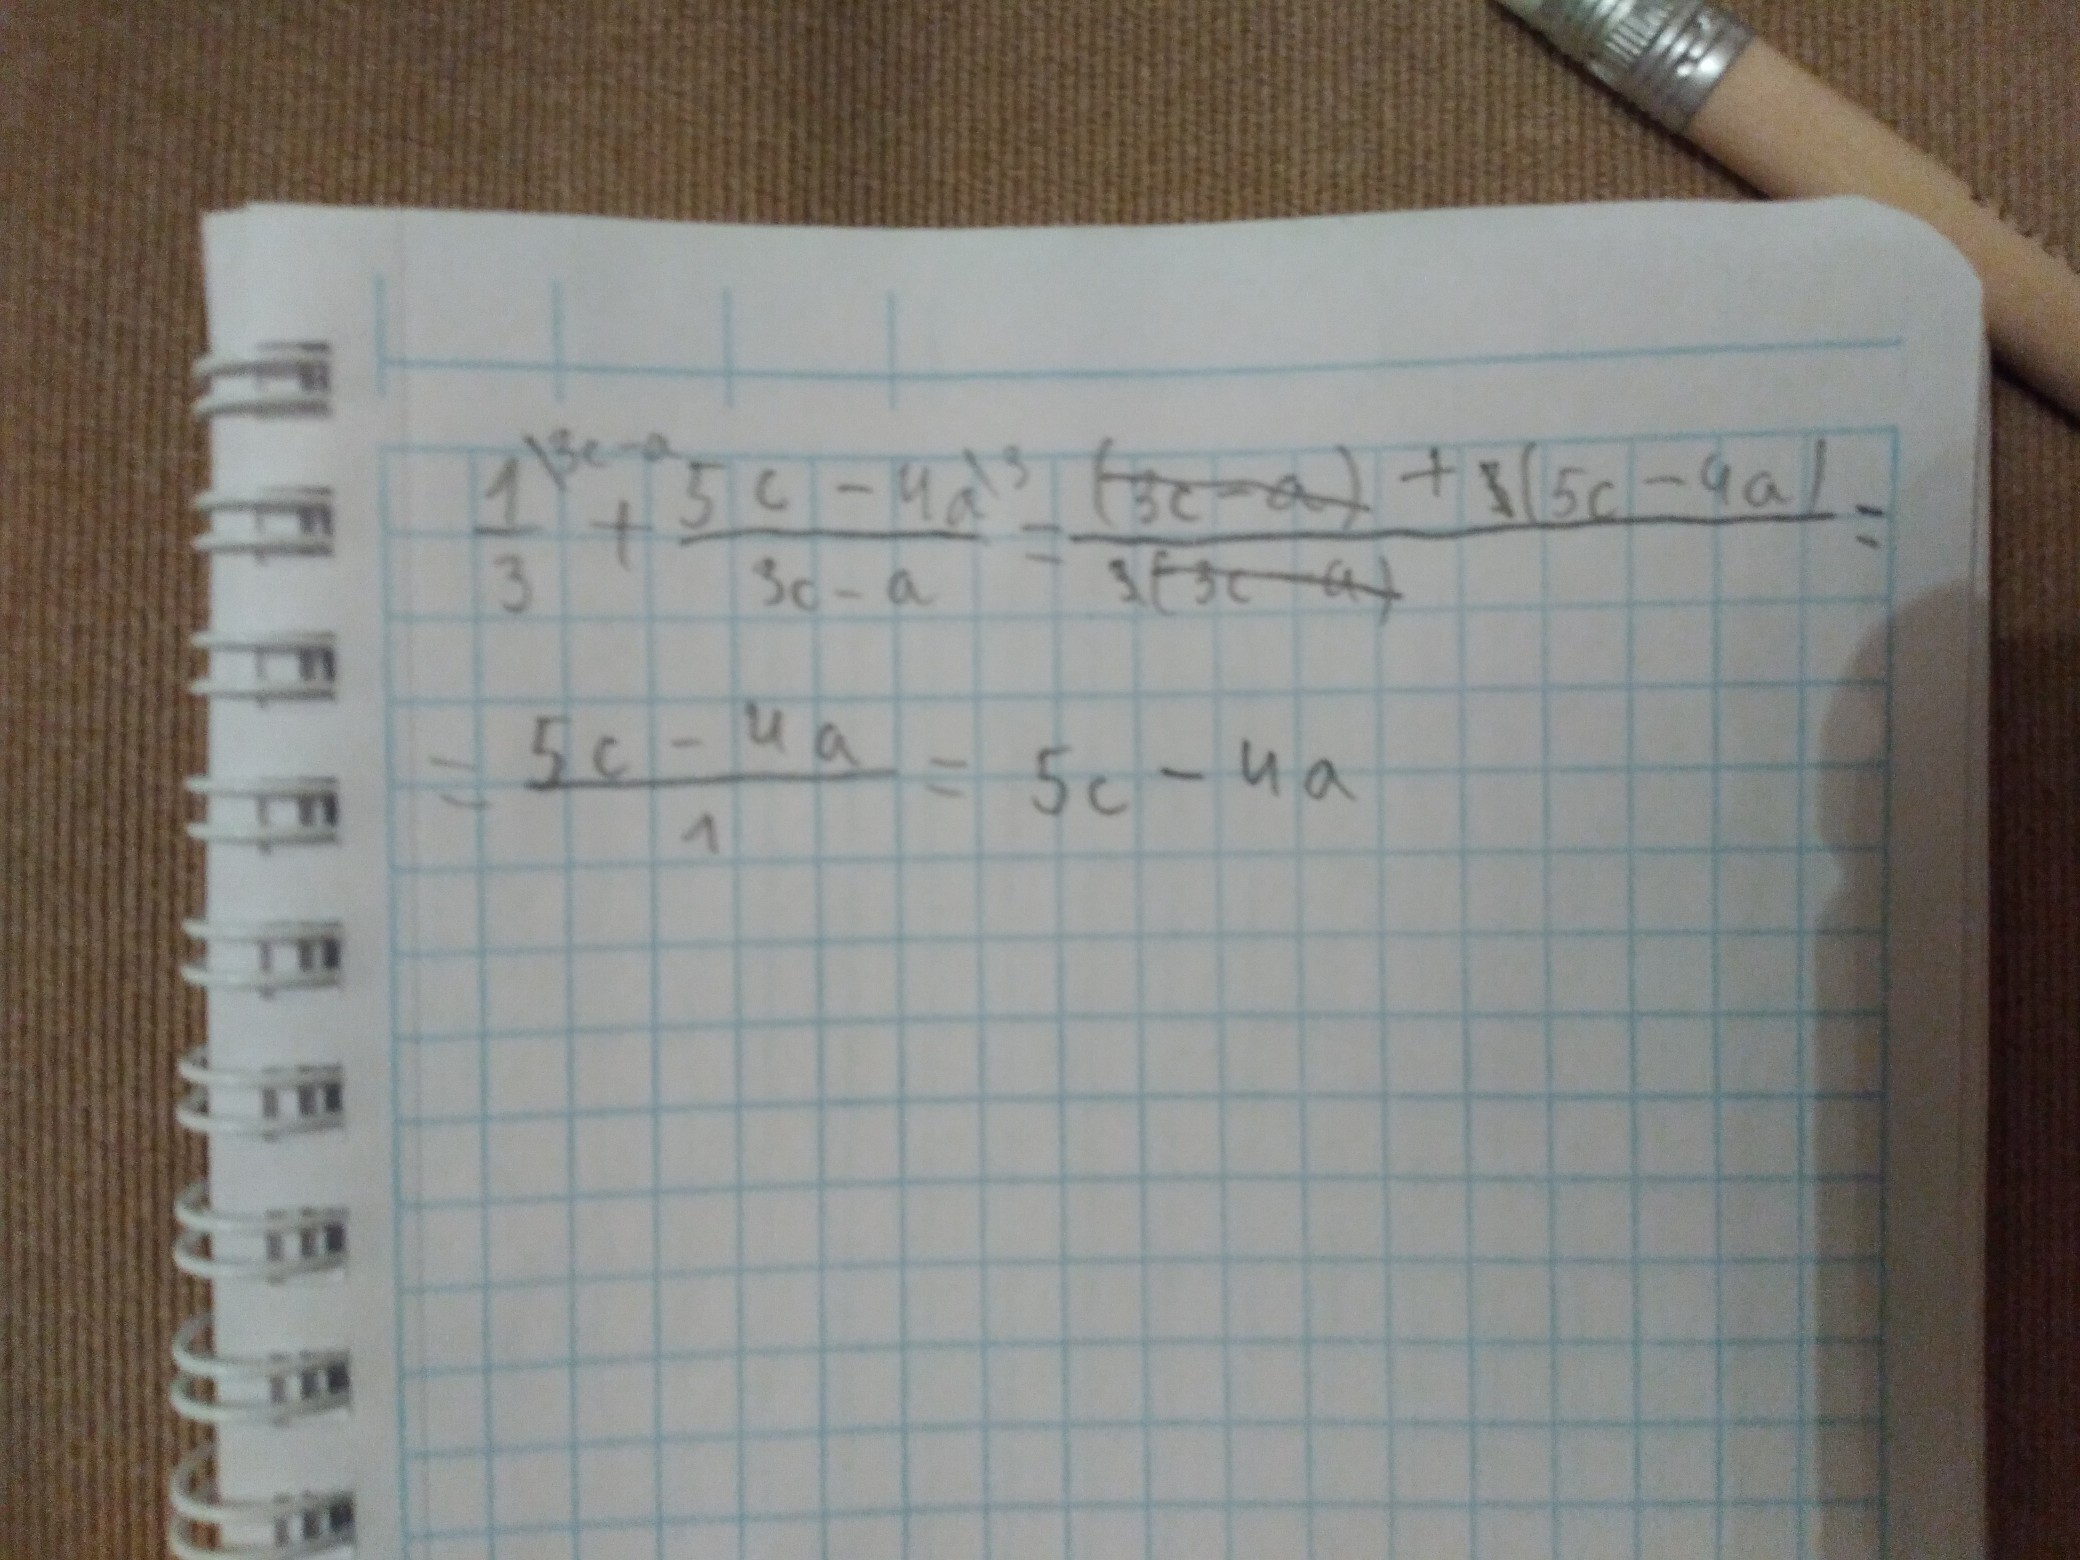 1/3 \3c-a + 5c-4a/3c-a \3 = (3c-a) + 3(5c-4a)/3(3c-a) =
= 5c-4a/1 = 5c-4a